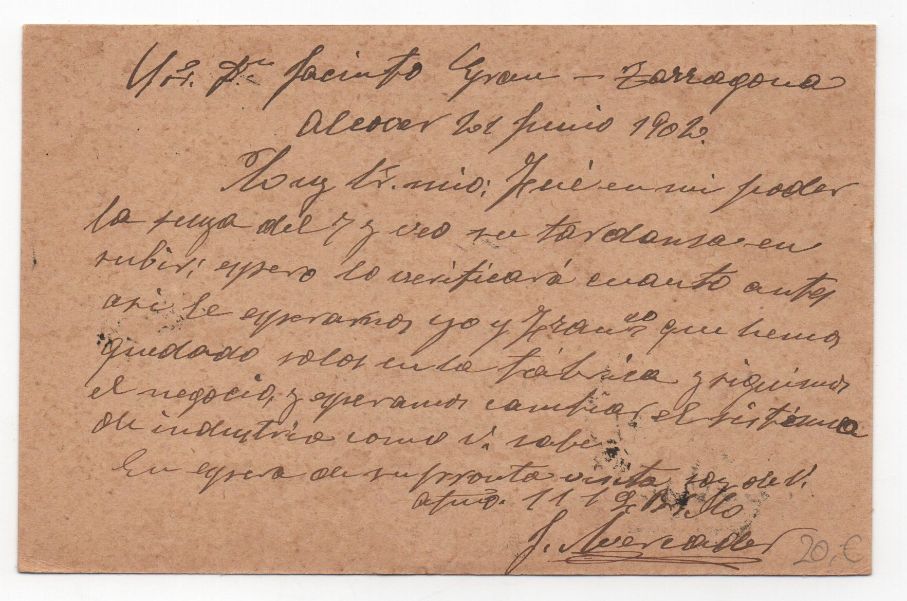 Sr. Dn Jacinto Grau – Tarragona
Alcover 21 Junio 1902
Muy Sr. mio: Fué en mi poder
la suya del 7 y veo su tardansa en
subir; espero lo verificará cuanto antes
asi le esperamos yo y Franco que hemos
quedado solos en la fábrica y siguimos
el negocio, y esperamos cambiar el sistema
de industria como V. sabe
En espera de su pronta visita soy de V.
atmo.
J. Mercader
20,-€